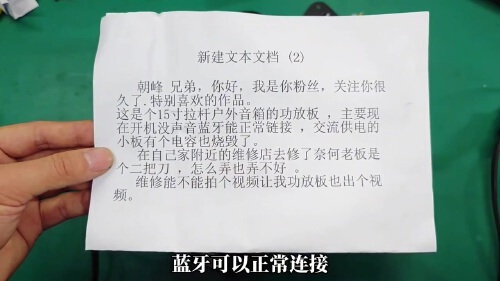 新建文本文档 (2)
朝峰 兄弟，你好，我是你粉丝，关注你很
久了.特别喜欢的作品。
这是个15寸拉杆户外音箱的功放板 ，主要现
在开机没声音蓝牙能正常链接 ，交流供电的
小板有个电容也烧毁了。
在自己家附近的维修店去修了奈何老板是
个二把刀 ，怎么弄也弄不好 。
维修能不能拍个视频让我功放板也出个视
频。
蓝牙可以正常连接